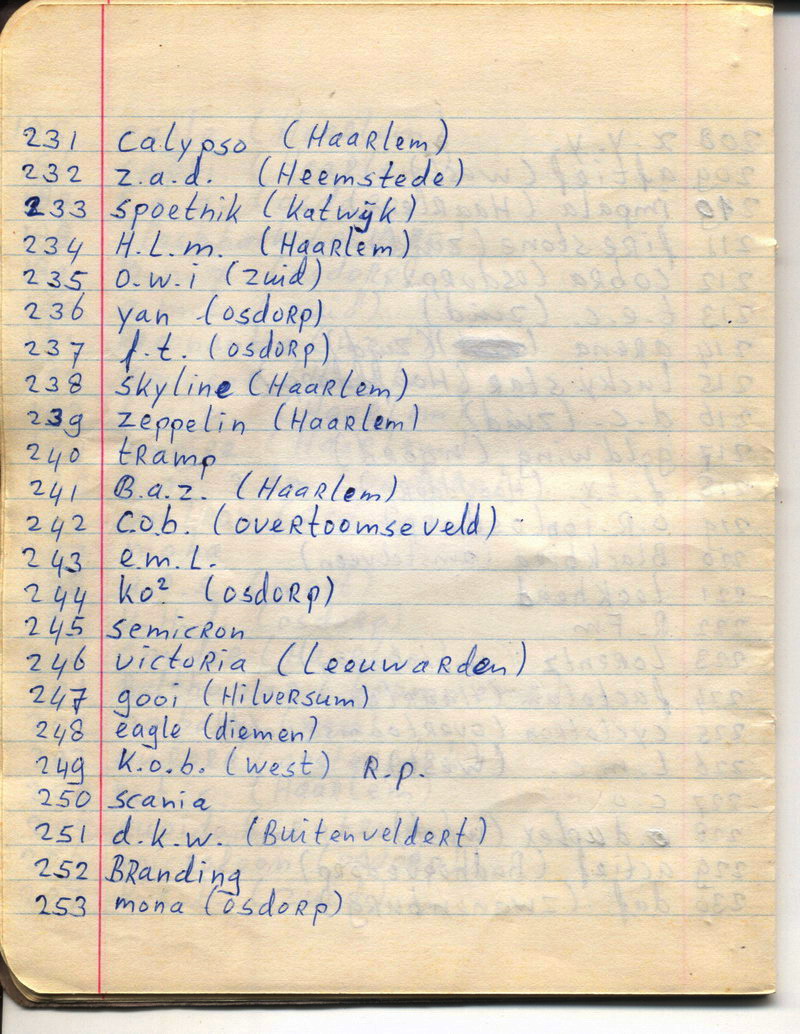 231 calypso (HaaRlem)
232 z.a.d. (Heemstede)
233 spoetnik (Katwijk)
234 H.L.m. (HaaRlem)
235 o.w.i (zuid)
236 yan (osdoRp)
237 f.t. (osdoRp)
238 skyline (HaaRlem)
239 zeppelin (HaaRlem)
240 tRamp
241 B.a.z. (HaaRlem)
242 c.o.b. (oveRtoomse veld)
243 e.m.L.
244 ko² (osdoRp)
245 semicRon
246 victoRia (LeeuwaRden)
247 gooi (HilveRsum)
248 eagle (diemen)
249 K.o.b. (west) R.p.
250 scania
251 d.k.w. (BuitenveldeRt)
252 BRanding
253 mona (osdoRp)